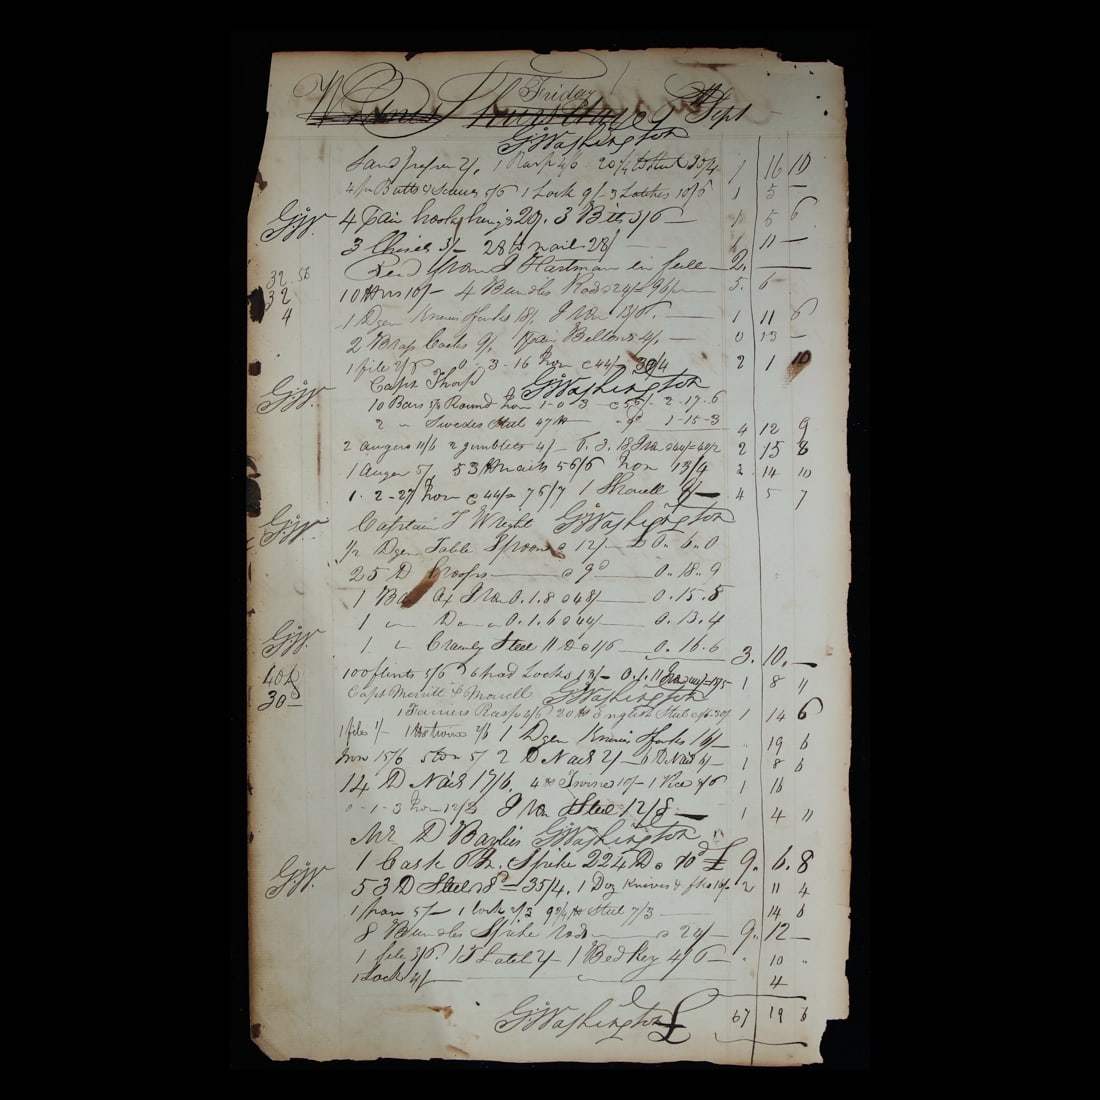 Friday
Wednes Thursday 9 Sept
G:Washington
Sand paper 2/. 1 Rasp 4/6 20 Steel 35/4 1 16 10
Butts & Screws 5/6 1 Lock 9/- 3 Latches 10/6 1 5 —
G:W. 4 pair hooks hings 20/. 3 Bitts 5/6 — 1 5 6
3 Chisels 3/- 28 lb nail 28/ — 1 11 —
32 56
Recd from J Hartman in full — 2. —
32
10 10/- 4 Bundles Rods 24/- 96/- 5. 6
4
1 Dozn Knives forks 18/. Iron 13/6. 1 11 6
2 Brass Cocks 9/. 1 pair Bellows 4/. — 0 13 —
1 file 2/6 0. 3-16 Iron @ 44/- 39/4 2 1 10
G:W. Capt Thorp G:Washington
10 Bars 5/8 Round Iron 1-0 3 - @ 56/- 2-17.6
2 " Swedes Steel 47 lb — 9d 1-15-3 4 12 9
2 augers 11/6 2 gimblets 4/- 2 15 8
1 Auger 5/ 53 lb nails 56/6 Iron 13/4 2. 14 10
1. 2-27 Iron @ 44/= 75/7 1 Shovell — 4 5 7
G:W. Captain T Wright G:Washington
1/2 Dozn Table Spoons @ 12/- £0.. 6.. 0
25 D hoops — @ 9d — 0.. 18.. 9
1 Bar Iron 0. 1. 8 @ 48/- 0.. 15.. 8
1 " D " 0. 1. 6 @ 44/- 0. 13. 4
G:W. 1 " Crawley Steel 11 D @ 1/6 — 0. 16. 6 3. 10. —
40
100 flints 5/6 6 pad Locks 18/- 1 8 11
30
Capt Merritt & Morrell G:Washington
1 Farriers Rasp 4/6 20 lb English Steel 1 14 6
1 files 1/- 1 lb twine 2/6 1 Dozn Knives forks 16/- " 19 6
Iron 15/6 5/ 2 D Nails 2/- 6 D Nails 6/- 1 8 6
14 D Nails 17/6. 4 lb Twine 10/- 1 1 16
0-1-3 Iron 12/3 Steel 12/8 — 1 4 11
Mr D Baylies G:Washington
1 Cask Br. Spike 224 D @ 10d £ 9.. 6. 8
G:W. 53 D Steel @ 8d = 35/4. 1 Doz Knives & 2 11 4
1 Iron 5/- 1 lock 2/3 Steel 7/3 — 14 6
8 Bundles Spike rods — @ 24/- 9.. 12 —
1 file 3/6. Latch 2/- 1 Bed Key 4/6 — " 10 "
1 Lock 4/- 4
G:Washington £ 67 19 6